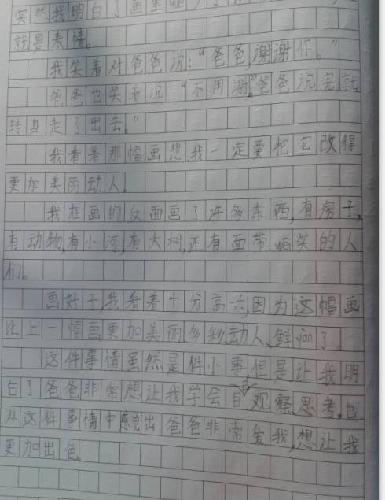 就是表情。
我笑着对爸爸说:“爸爸,谢谢你。”
爸爸也笑着说“不用谢”爸爸说完就
转身走了出去。”
我看着那幅画想我一定要把它改得
更加美丽动人。
我在画的反面画了许多东西,有房子,
有动物,有小河,有大树,还有面带微笑的人
们。
画好了我看着十分高兴因为这幅画
比上一幅画更加美丽动人,鲜
这件事情虽然是件小事但是让我明
白了爸爸非常想让我学会自 观察思考,也
从这件事情中感 出爸爸非常爱我,想让我
更加出色